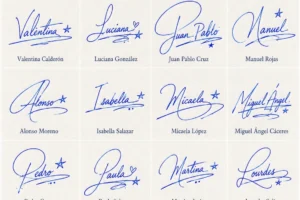 Valentina Luciana Juan Pablo Manuel
Valentina Calderón Luciana González Juan Pablo Cruz Manuel Rojas
Alonso Isabella Micaela Miguel Ángel
Alonso Moreno Isabella Salazar Micaela López Miguel Ángel Cáceres
Pedro Paula Martina Lourdes